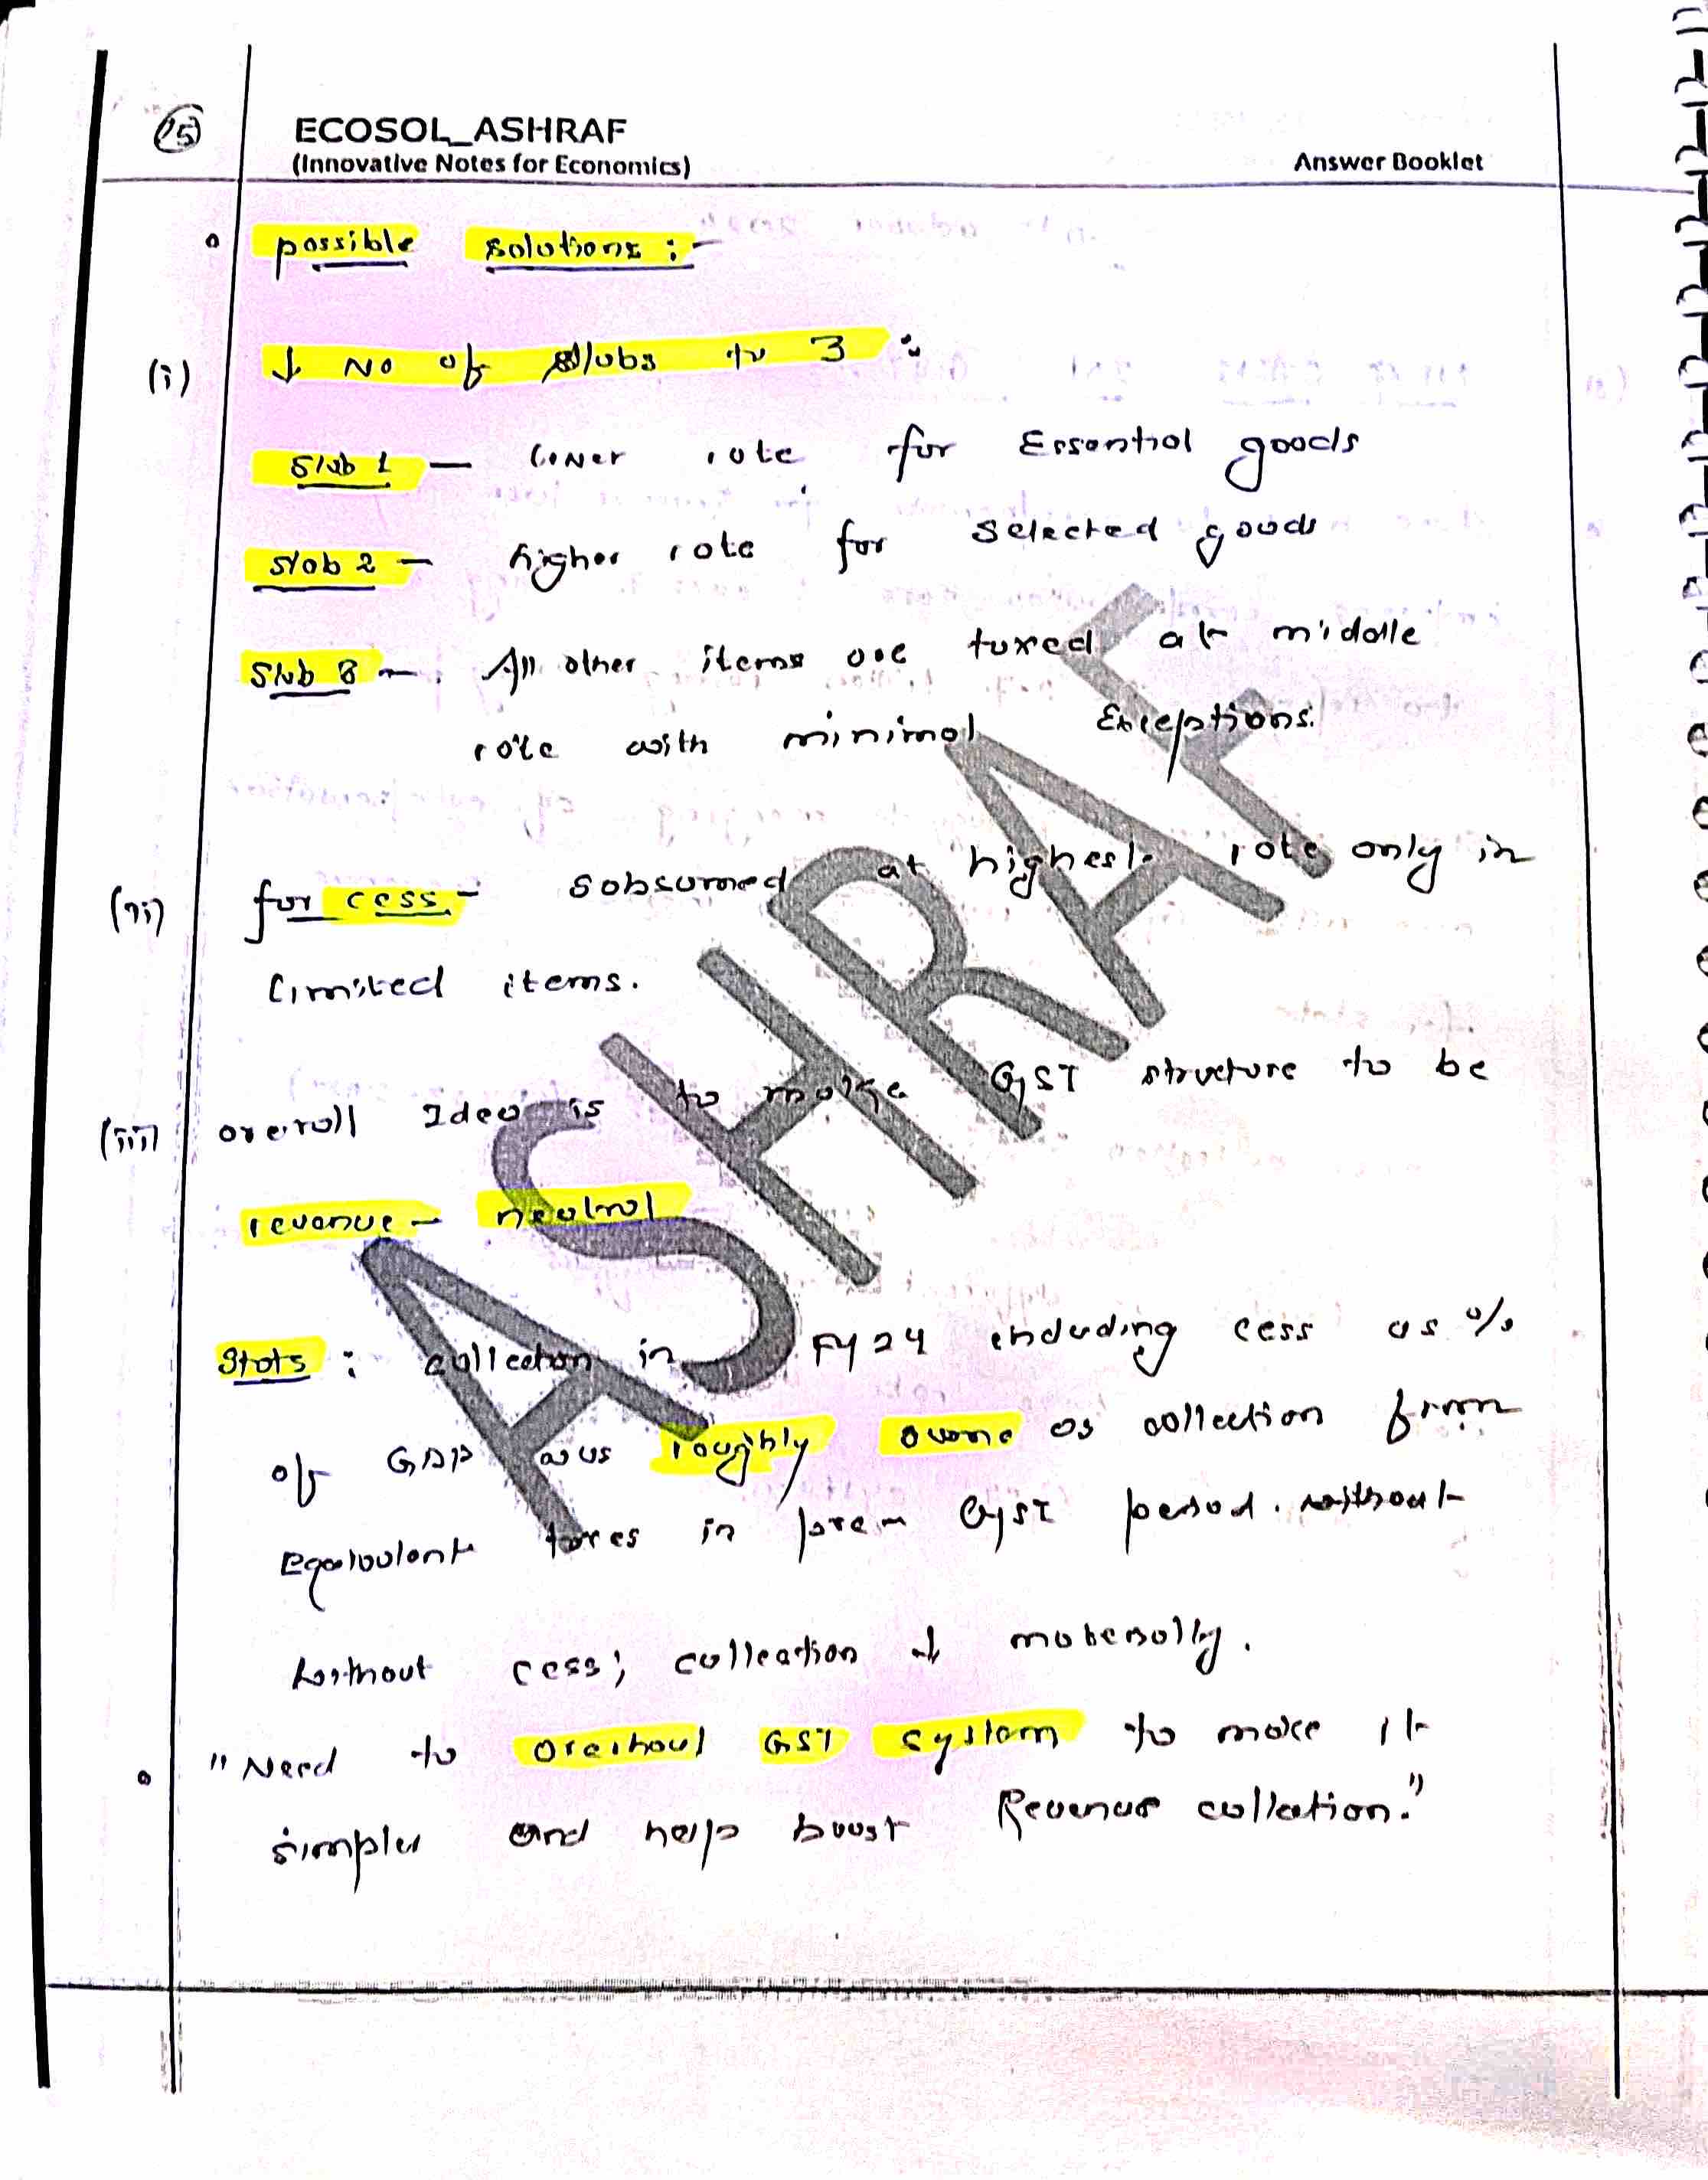 15
ECOSOL_ASHRAF
(Innovative Notes for Economics)
Answer Booklet
possible solutions :-
(i) ↓ No of slabs to 3 :
Slab 1 — lower rate for Essential goods
Slab 2 — higher rate for selected goods
Slab 3 — All other items are taxed at middle
rate with minimal Exceptions.
(ii) for cess - subsumed at highest rate only in
limited items.
(iii) overall Idea is to make GST structure to be
revenue - neutral
Stats : collection in FY 24 including cess as %
of GDP was roughly same as collection from
Equivalent taxes in pre - GST period. without
without cess; collection ↓ materially.
"Need to overhaul GST system to make it
simpler and help boost Revenue collection."
ASHRAF